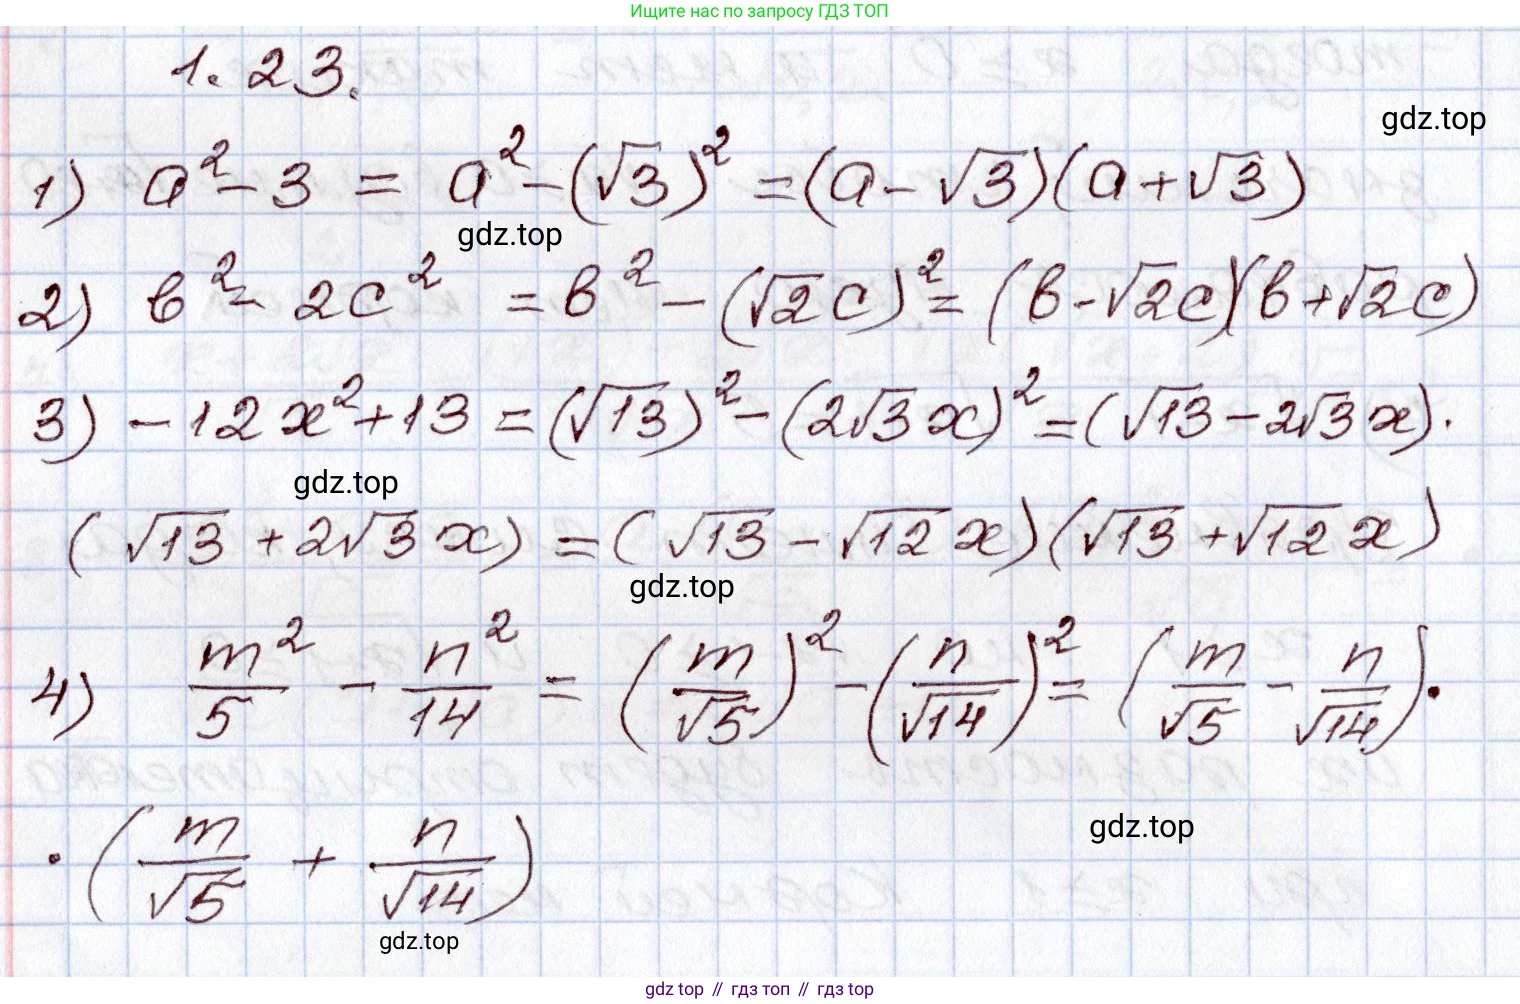 Ищите нас по запросу ГДЗ ТОП
1.23.
gdz.top
1) a² - 3 = a² - (√3)² = (a - √3)(a + √3)
gdz.top
2) в² - 2c² = в² - (√2c)² = (в - √2c)(в + √2c)
3) - 12x² + 13 = (√13)² - (2√3x)² = (√13 - 2√3x)·
gdz.top
(√13 + 2√3x) = (√13 - √12x)(√13 + √12x)
gdz.top
4) m²/5 - n²/14 = (m/√5)² - (n/√14)² = (m/√5 - n/√14)·
·(m/√5 + n/√14)
gdz.top
gdz.top
gdz top // гдз топ // gdz top